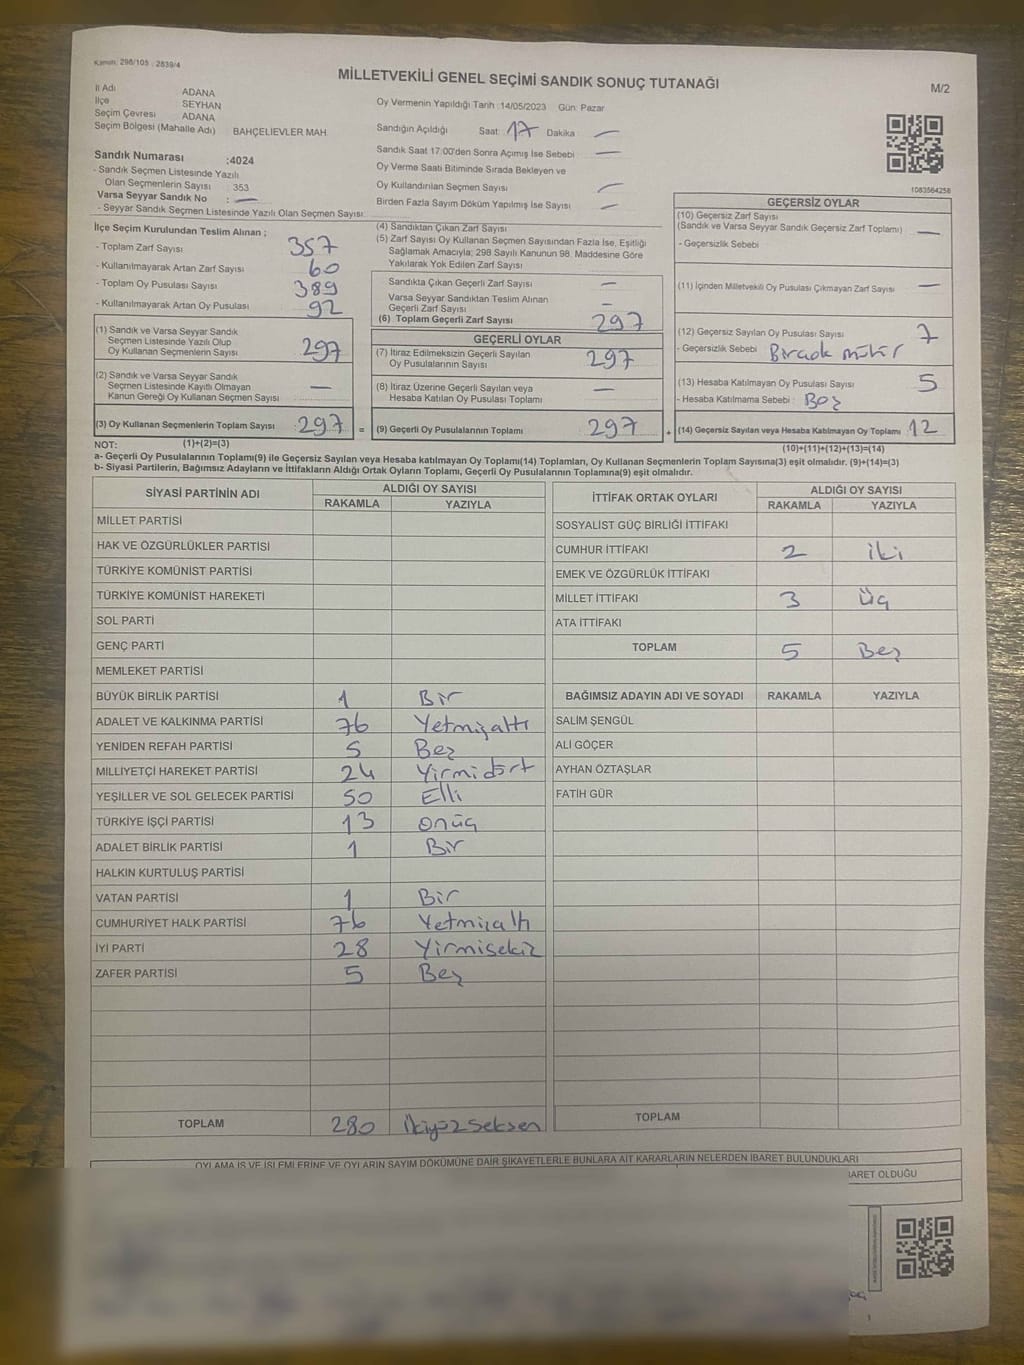 Kanun: 298/105 : 2839/4
MİLLETVEKİLİ GENEL SEÇİMİ SANDIK SONUÇ TUTANAĞI
M/2
İl Adı ADANA
İlçe SEYHAN
Seçim Çevresi ADANA
Seçim Bölgesi (Mahalle Adı) BAHÇELİEVLER MAH.
Sandık Numarası :4024
- Sandık Seçmen Listesinde Yazılı
Olan Seçmenlerin Sayısı : 353
Varsa Seyyar Sandık No : —
- Seyyar Sandık Seçmen Listesinde Yazılı Olan Seçmen Sayısı:
Oy Vermenin Yapıldığı Tarih :14/05/2023 Gün: Pazar
Sandığın Açıldığı Saat: 17 Dakika —
Sandık Saat 17:00'den Sonra Açımış İse Sebebi —
Oy Verme Saati Bitiminde Sırada Bekleyen ve
Oy Kullandırılan Seçmen Sayısı —
Birden Fazla Sayım Döküm Yapılmış İse Sayısı —
1083564258
İlçe Seçim Kurulundan Teslim Alınan ;
- Toplam Zarf Sayısı 357
- Kullanılmayarak Artan Zarf Sayısı 60
- Toplam Oy Pusulası Sayısı 389
- Kullanılmayarak Artan Oy Pusulası 92
(1) Sandık ve Varsa Seyyar Sandık
Seçmen Listesinde Yazılı Olup
Oy Kullanan Seçmenlerin Sayısı 297
(2) Sandık ve Varsa Seyyar Sandık
Seçmen Listesinde Kayıtlı Olmayan
Kanun Gereği Oy Kullanan Seçmen Sayısı —
(3) Oy Kullanan Seçmenlerin Toplam Sayısı 297 =
(4) Sandıktan Çıkan Zarf Sayısı
(5) Zarf Sayısı Oy Kullanan Seçmen Sayısından Fazla İse, Eşitliği
Sağlamak Amacıyla; 298 Sayılı Kanunun 98. Maddesine Göre
Yakılarak Yok Edilen Zarf Sayısı
Sandıkta Çıkan Geçerli Zarf Sayısı —
Varsa Seyyar Sandıktan Teslim Alınan
Geçerli Zarf Sayısı —
(6) Toplam Geçerli Zarf Sayısı 297
GEÇERLİ OYLAR
(7) İtiraz Edilmeksizin Geçerli Sayılan
Oy Pusulalarının Sayısı 297
(8) İtiraz Üzerine Geçerli Sayılan veya
Hesaba Katılan Oy Pusulası Toplamı —
(9) Geçerli Oy Pusulalarının Toplamı 297 +
GEÇERSİZ OYLAR
(10) Geçersiz Zarf Sayısı
(Sandık ve Varsa Seyyar Sandık Geçersiz Zarf Toplamı) —
- Geçersizlik Sebebi
(11) İçinden Milletvekili Oy Pusulası Çıkmayan Zarf Sayısı —
(12) Geçersiz Sayılan Oy Pusulası Sayısı 7
- Geçersizlik Sebebi Birçok mühür
(13) Hesaba Katılmayan Oy Pusulası Sayısı 5
- Hesaba Katılmama Sebebi : Boş
(14) Geçersiz Sayılan veya Hesaba Katılmayan Oy Toplamı 12
NOT: (1)+(2)=(3)
(10)+(11)+(12)+(13)=(14)
a- Geçerli Oy Pusulalarının Toplamı(9) ile Geçersiz Sayılan veya Hesaba katılmayan Oy Toplamı(14) Toplamları, Oy Kullanan Seçmenlerin Toplam Sayısına(3) eşit olmalıdır. (9)+(14)=(3)
b- Siyasi Partilerin, Bağımsız Adayların ve İttifakların Aldığı Ortak Oyların Toplamı, Geçerli Oy Pusulalarının Toplamına(9) eşit olmalıdır.
SİYASİ PARTİNİN ADI ALDIĞI OY SAYISI
RAKAMLA YAZIYLA
MİLLET PARTİSİ
HAK VE ÖZGÜRLÜKLER PARTİSİ
TÜRKİYE KOMÜNİST PARTİSİ
TÜRKİYE KOMÜNİST HAREKETİ
SOL PARTİ
GENÇ PARTİ
MEMLEKET PARTİSİ
BÜYÜK BİRLİK PARTİSİ 1 Bir
ADALET VE KALKINMA PARTİSİ 76 Yetmişaltı
YENİDEN REFAH PARTİSİ 5 Beş
MİLLİYETÇİ HAREKET PARTİSİ 24 Yirmidört
YEŞİLLER VE SOL GELECEK PARTİSİ 50 Elli
TÜRKİYE İŞÇİ PARTİSİ 13 onüç
ADALET BİRLİK PARTİSİ 1 Bir
HALKIN KURTULUŞ PARTİSİ
VATAN PARTİSİ 1 Bir
CUMHURİYET HALK PARTİSİ 76 Yetmişaltı
İYİ PARTİ 28 Yirmisekiz
ZAFER PARTİSİ 5 Beş
TOPLAM 280 İkiyüzseksen
İTTİFAK ORTAK OYLARI ALDIĞI OY SAYISI
RAKAMLA YAZIYLA
SOSYALİST GÜÇ BİRLİĞİ İTTİFAKI
CUMHUR İTTİFAKI 2 iki
EMEK VE ÖZGÜRLÜK İTTİFAKI
MİLLET İTTİFAKI 3 Üç
ATA İTTİFAKI
TOPLAM 5 Beş
BAĞIMSIZ ADAYIN ADI VE SOYADI RAKAMLA YAZIYLA
SALİM ŞENGÜL
ALİ GÖÇER
AYHAN ÖZTAŞLAR
FATİH GÜR
TOPLAM
OYLAMA İŞ VE İŞLEMLERİNE VE OYLARIN SAYIM DÖKÜMÜNE DAİR ŞİKAYETLERLE BUNLARA AİT KARARLARIN NELERDEN İBARET BULUNDUKLARI
BARET OLDUĞU
1